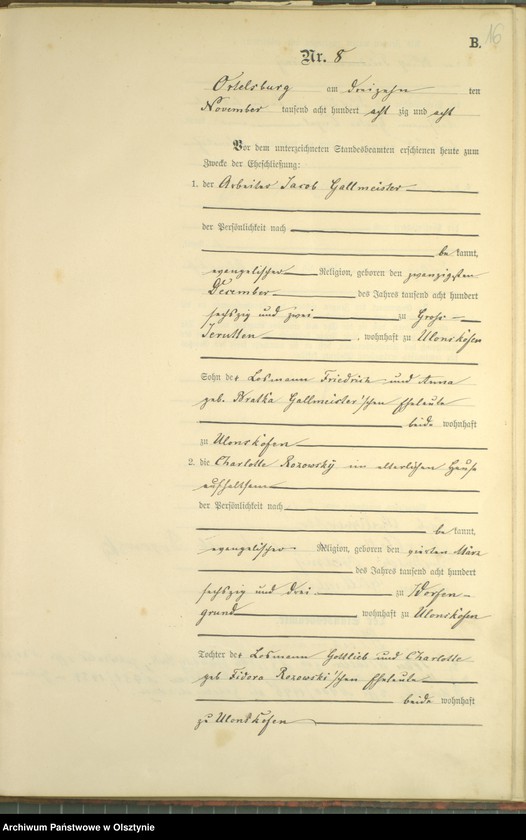 B. 16
Nr. 8
Ortelsburg am dreizehn ten
November tausend acht hundert acht zig und acht
Vor dem unterzeichneten Standesbeamten erschienen heute zum
Zwecke der Eheschließung:
1. der Arbeiter Jacob Gallmeister
der Persönlichkeit nach
be kannt,
evangelischer Religion, geboren den zwanzigsten
December des Jahres tausend acht hundert
sechszig und zwei zu Gross-
Jerutten, wohnhaft zu Ulonskofen
Sohn des Losmann Friedrich und Anna
geb. Gallmeister'schen Eheleute
beide wohnhaft
zu Ulonskofen
2. die Charlotte Rozowsky im elterlichen Hause
der Persönlichkeit nach
be kannt,
evangelischer Religion, geboren den vierten März
des Jahres tausend acht hundert
sechszig und drei zu
grund wohnhaft zu Ulonskofen
Tochter des Losmann Gottlieb und Charlotte
geb Fidora Rozowski'schen Eheleute
beide wohnhaft
zu Ulonskofen
Archiwum Państwowe w Olsztynie